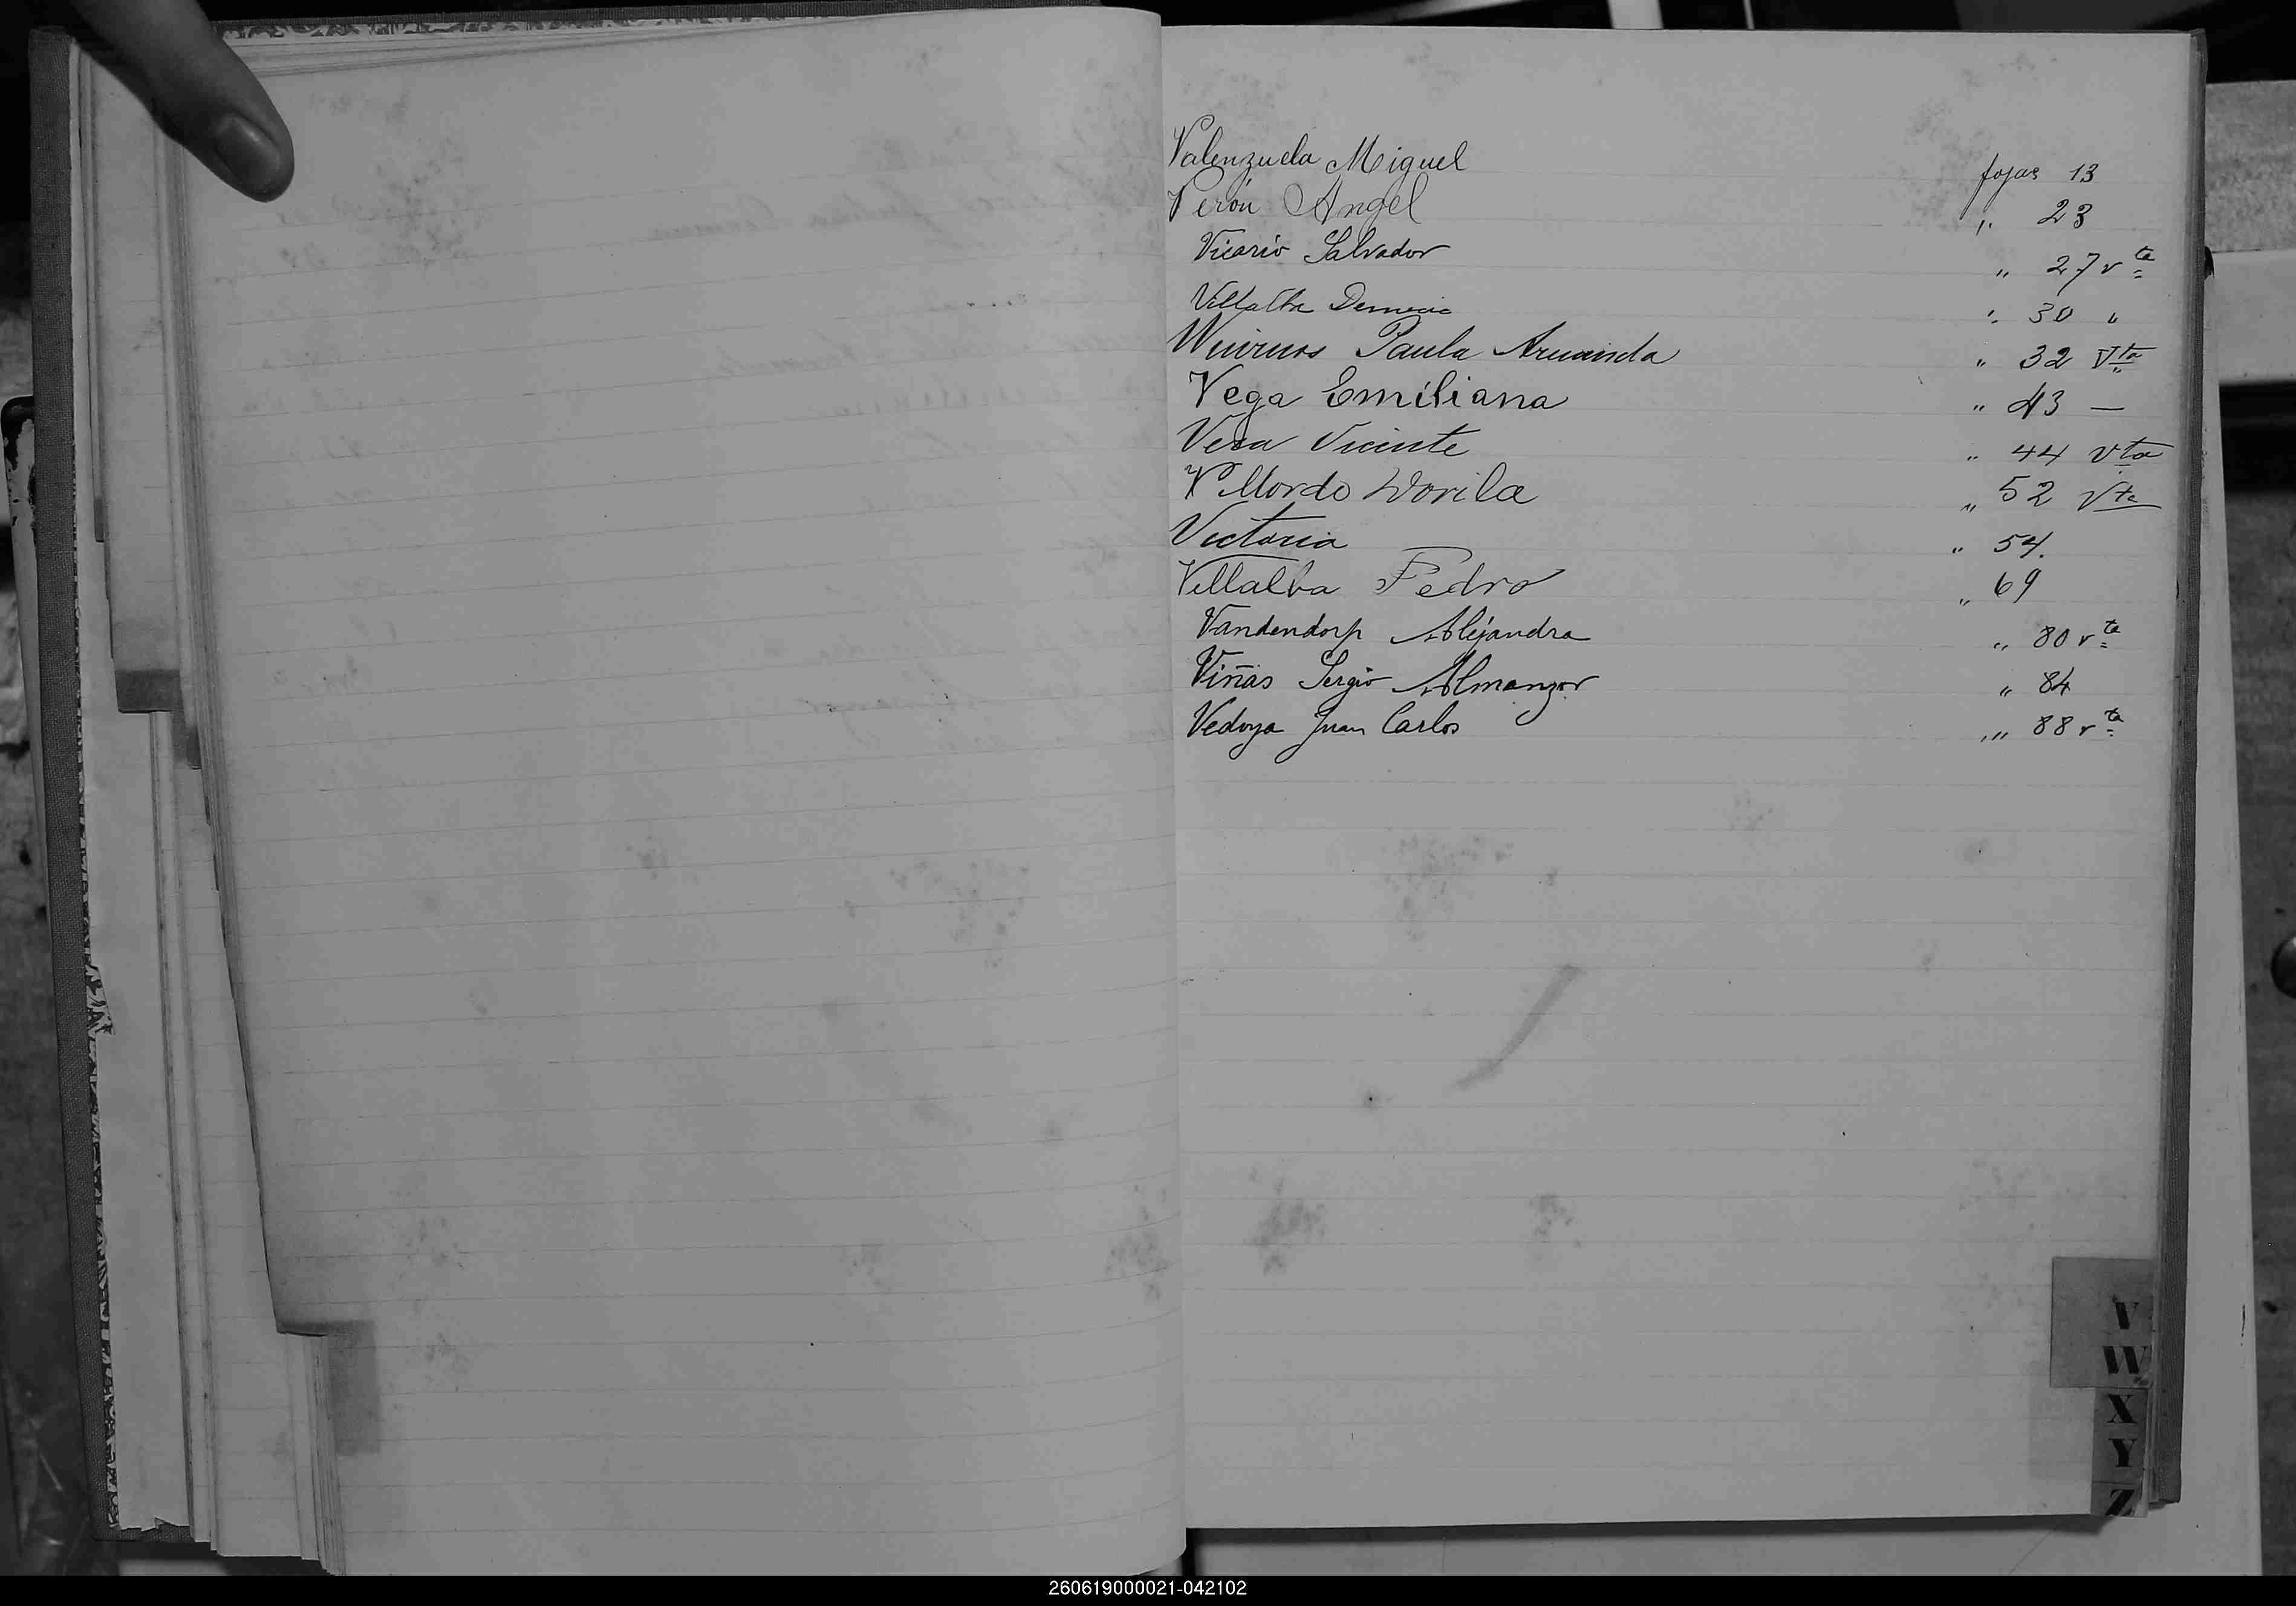 Valenzuela Miguel fojas 13
Verón Angel " 23
Vicario Salvador " 27 vta
Villalba " 30 "
Paula Arminda " 32 Vta
Vega Emiliana " 43 —
Vera Vicente " 44 Vta
Villordo Dorila " 52 Vta
Victoria " 54.
Villalba Pedro " 69
Vandendorp Alejandra " 80 vta
Viñas Sergio Almanzor " 84
Vedoya Juan Carlos " 88 vta
V
W
X
Y
Z
260619000021-042102